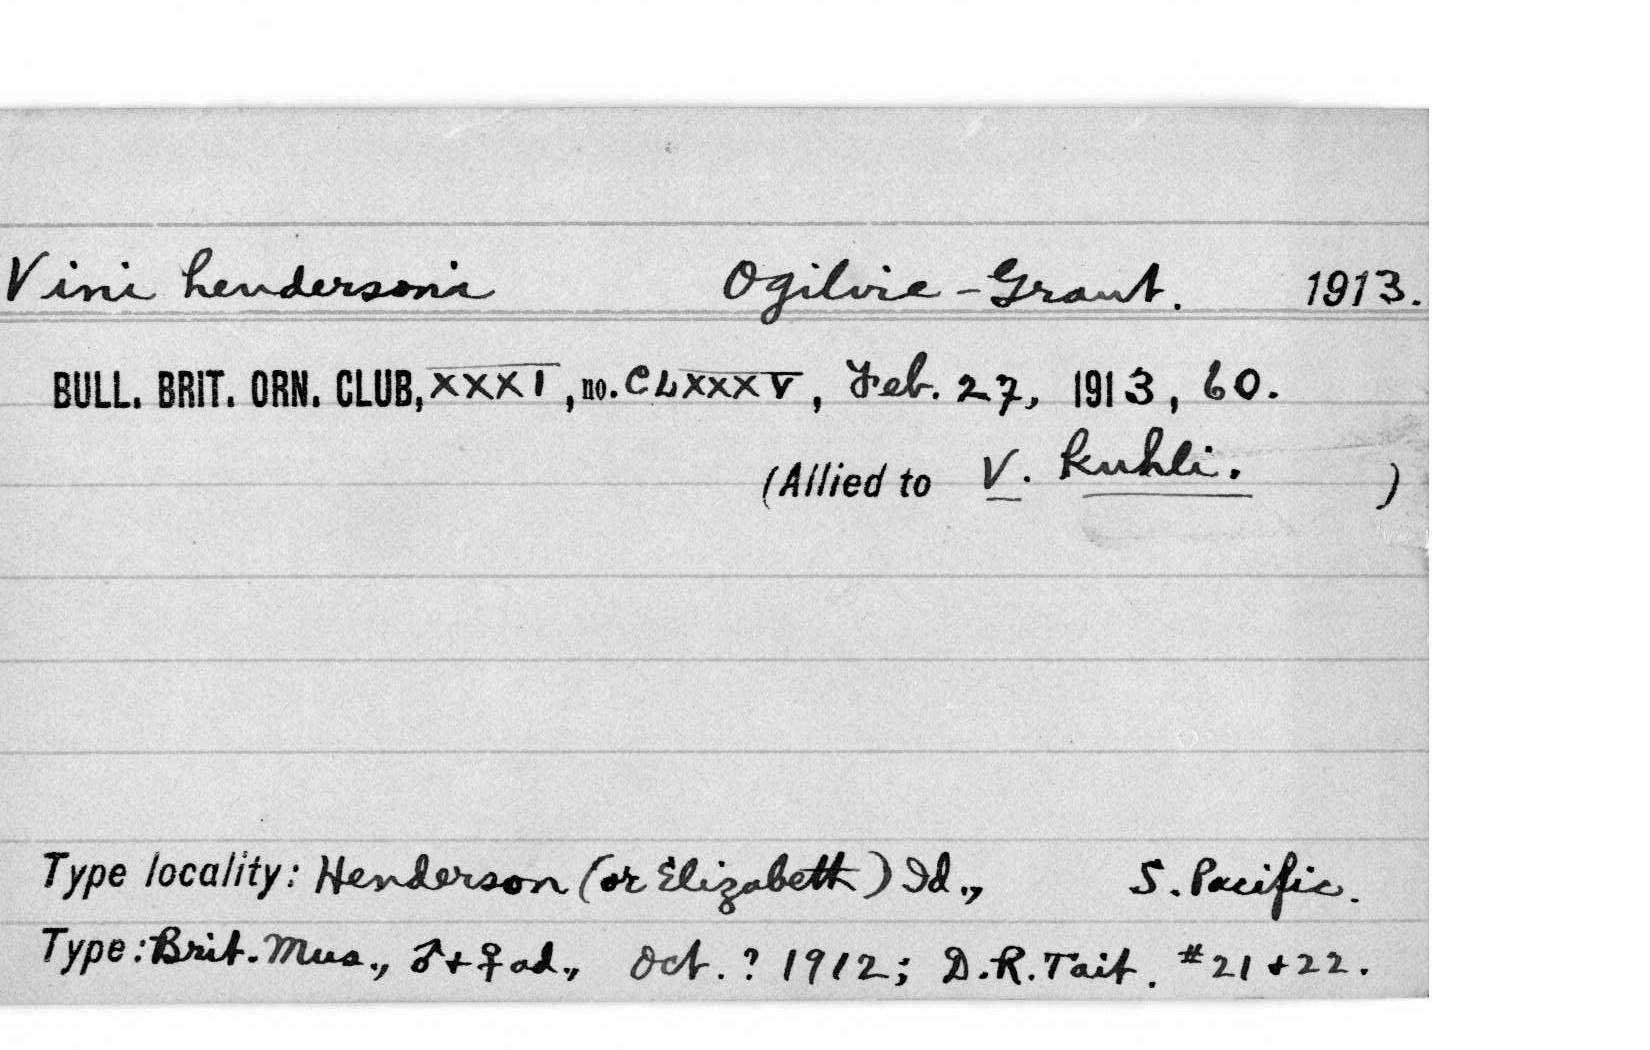 Vini hendersoni Ogilvie-Grant. 1913.
BULL. BRIT. ORN. CLUB, XXXI, no. CLXXXV, Feb. 27, 1913, 60.
(Allied to V. kuhli. )
Type locality: Henderson (or Elizabeth) Id., S. Pacific.
Type: Brit. Mus., ♂ + ♀ ad., Oct. ? 1912; D.R. Tait. #21 + 22.